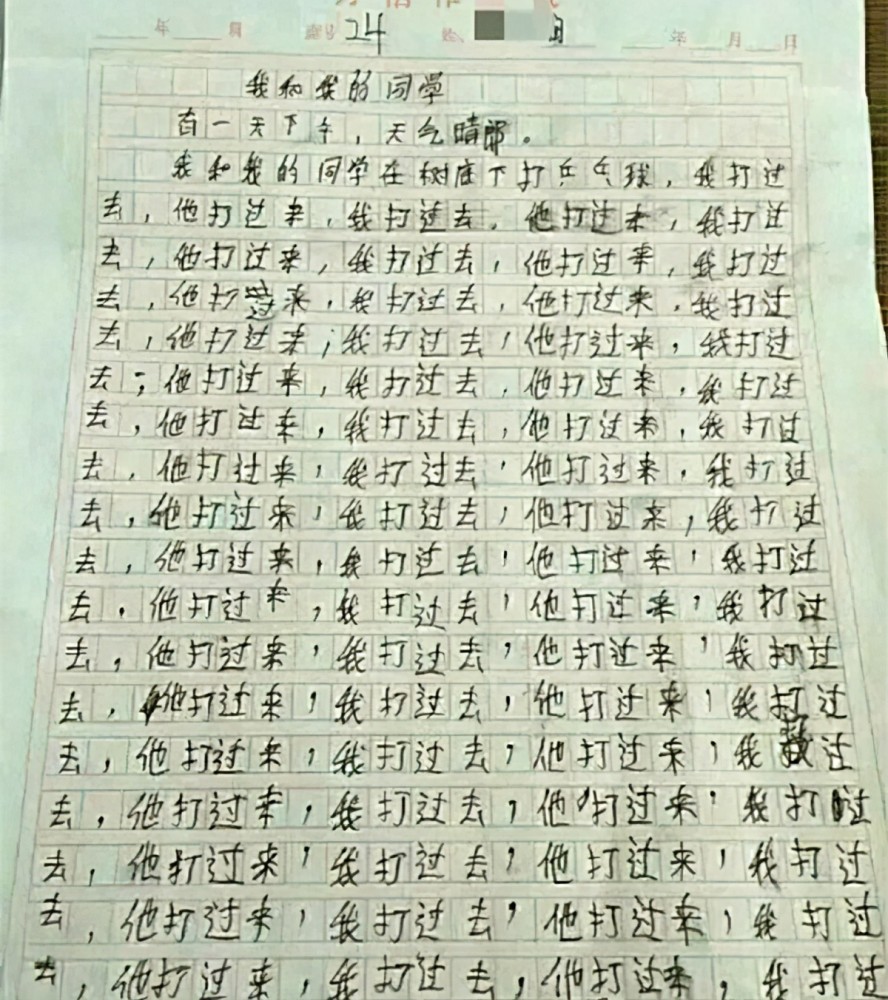 年 月 24 年 月 日
我和我的同学
有一天下午，天气晴郎。
我和我的同学在树底下打乒乓球，我打过
去，他打过来，我打过去，他打过来，我打过
去，他打过来，我打过去，他打过来，我打过
去，他打过来，我打过去，他打过来，我打过
去，他打过来，我打过去，他打过来，我打过
去，他打过来，我打过去，他打过来，我打过
去，他打过来，我打过去，他打过来，我打过
去，他打过来，我打过去，他打过来，我打过
去，他打过来，我打过去，他打过来，我打过
去，他打过来，我打过去，他打过来，我打过
去，他打过来，我打过去，他打过来，我打过
去，他打过来，我打过去，他打过来，我打过
去，他打过来，我打过去，他打过来，我打过
去，他打过来，我打过去，他打过来，我过
去，他打过来，我打过去，他打过来，我打过
去，他打过来，我打过去，他打过来，我打过
去，他打过来，我打过去，他打过来，我打过
去，他打过来，我打过去，他打过来，我打过